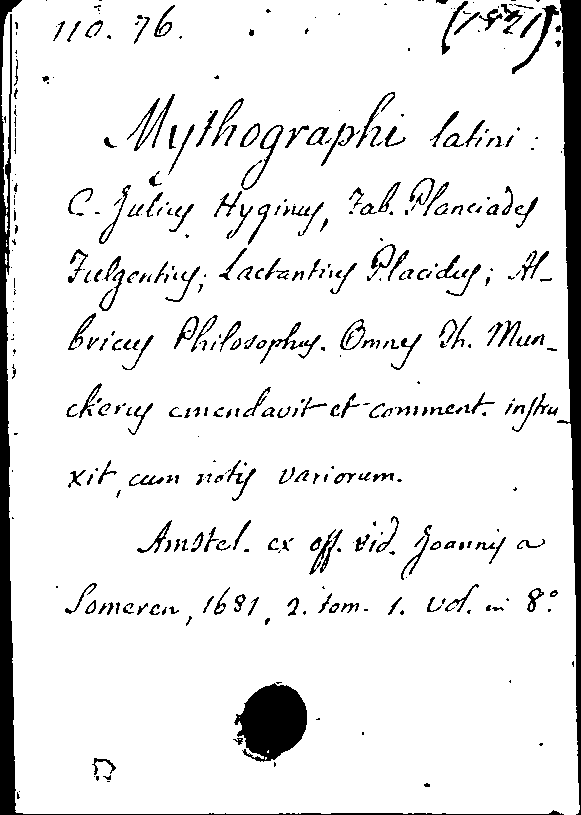 110. 76.
Mythographi latini:
C. Julius Hyginus, Fab. Planciades
Fulgentius; Lactantius Placidus; Al-
bricus Philosophus. Omnes Th. Mun-
ckerus emendavit et comment. instru-
xit, cum notis variorum.
Amstel. ex off. vid. Joannis a
Someren, 1681, 2. tom. 1. vol. in 8°.